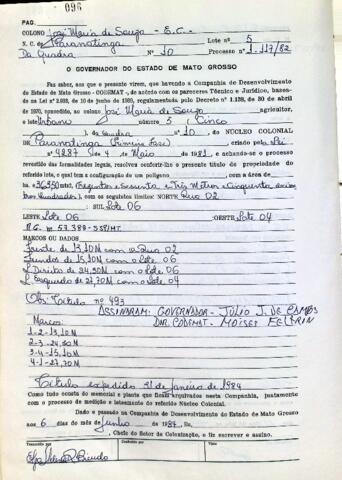 PAG. 096
COLONO José Maria de Souza - E.C.- Lote nº 5
N. C. de Paranatinga Processo nº 1.117/82
Da Quadra Nº 10
O GOVERNADOR DO ESTADO DE MATO GROSSO
Faz saber, aos que o presente virem, que havendo a Companhia de Desenvolvimento
do Estado de Mato Grosso - CODEMAT -, de acôrdo com os pareceres Técnico e Jurídico, basea-
dos na Lei nº 2.938, de 10 de junho de 1939, regulamentada pelo Decreto nº 1.138, de 30 de abril
de 1970, concedido ao colono José Maria de Souza agricultor,
o lote Urbano número 5 (Cinco
da quadra nº 10. do NÚCLEO COLONIAL
DE Paranatinga (Primeira Fase) criado pela Lei
nº 4287 de 4 de Maio de 1981, e achando-se o processo
revestido das formalidades legais, resolveu conferir-lhe o presente título de propriedade do
referido lote, o qual tem a configuração de um polígono com a área de
ha = 363,50 mts2 (Trezentos e Sessenta e Três Metros e Cinquenta
tros Quadrados), com os seguintes limites: NORTE Rua 02
SUL Lote 06
LESTE Lote 06 OESTE Lote 04
R.G. nº 57.388-SSP/MT.
MARCOS OU DADOS
Frente de 13,10M com a Rua 02
Fundos de 15,10M com o lote 06
L. Direita de 24,30M com o lote 06
L. Esquerdo de 27,70M com o lote 04
Obs: Título nº 493
ASSINARAM: GOVERNADOR - JÚLIO J. DE CAMPOS
Marcos: DIR. CODEMAT - MOISÉS FELTRIN
1-2-13,10M
2-3-24,30M
3-4-15,10M
4-1-27,70M
Título expedido 21 de janeiro de 1984
Como tudo consta do memorial e planta que ficam arquivados nesta Companhia, juntamente
com o processo de medição e loteamento do referido Núcleo Colonial.
Dado e passado na Companhia de Desenvolvimento do Estado de Mato Grosso
aos 6 dias do mês de junho de 1984, Eu,
, Chefe do Setor de Colonização, o fiz escrever e assino.
Transcrito por Conferido por Visto